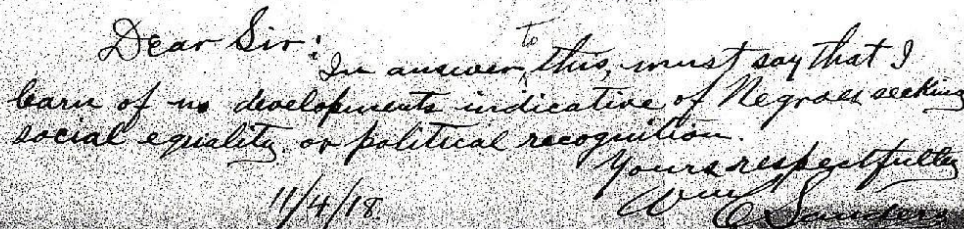 Dear Sir:
In answer to this, must say that I
learn of no developments indicative of Negroes seeking
social equality or political recognition.
Yours respectfully
Wm C Sanders
11/4/18.